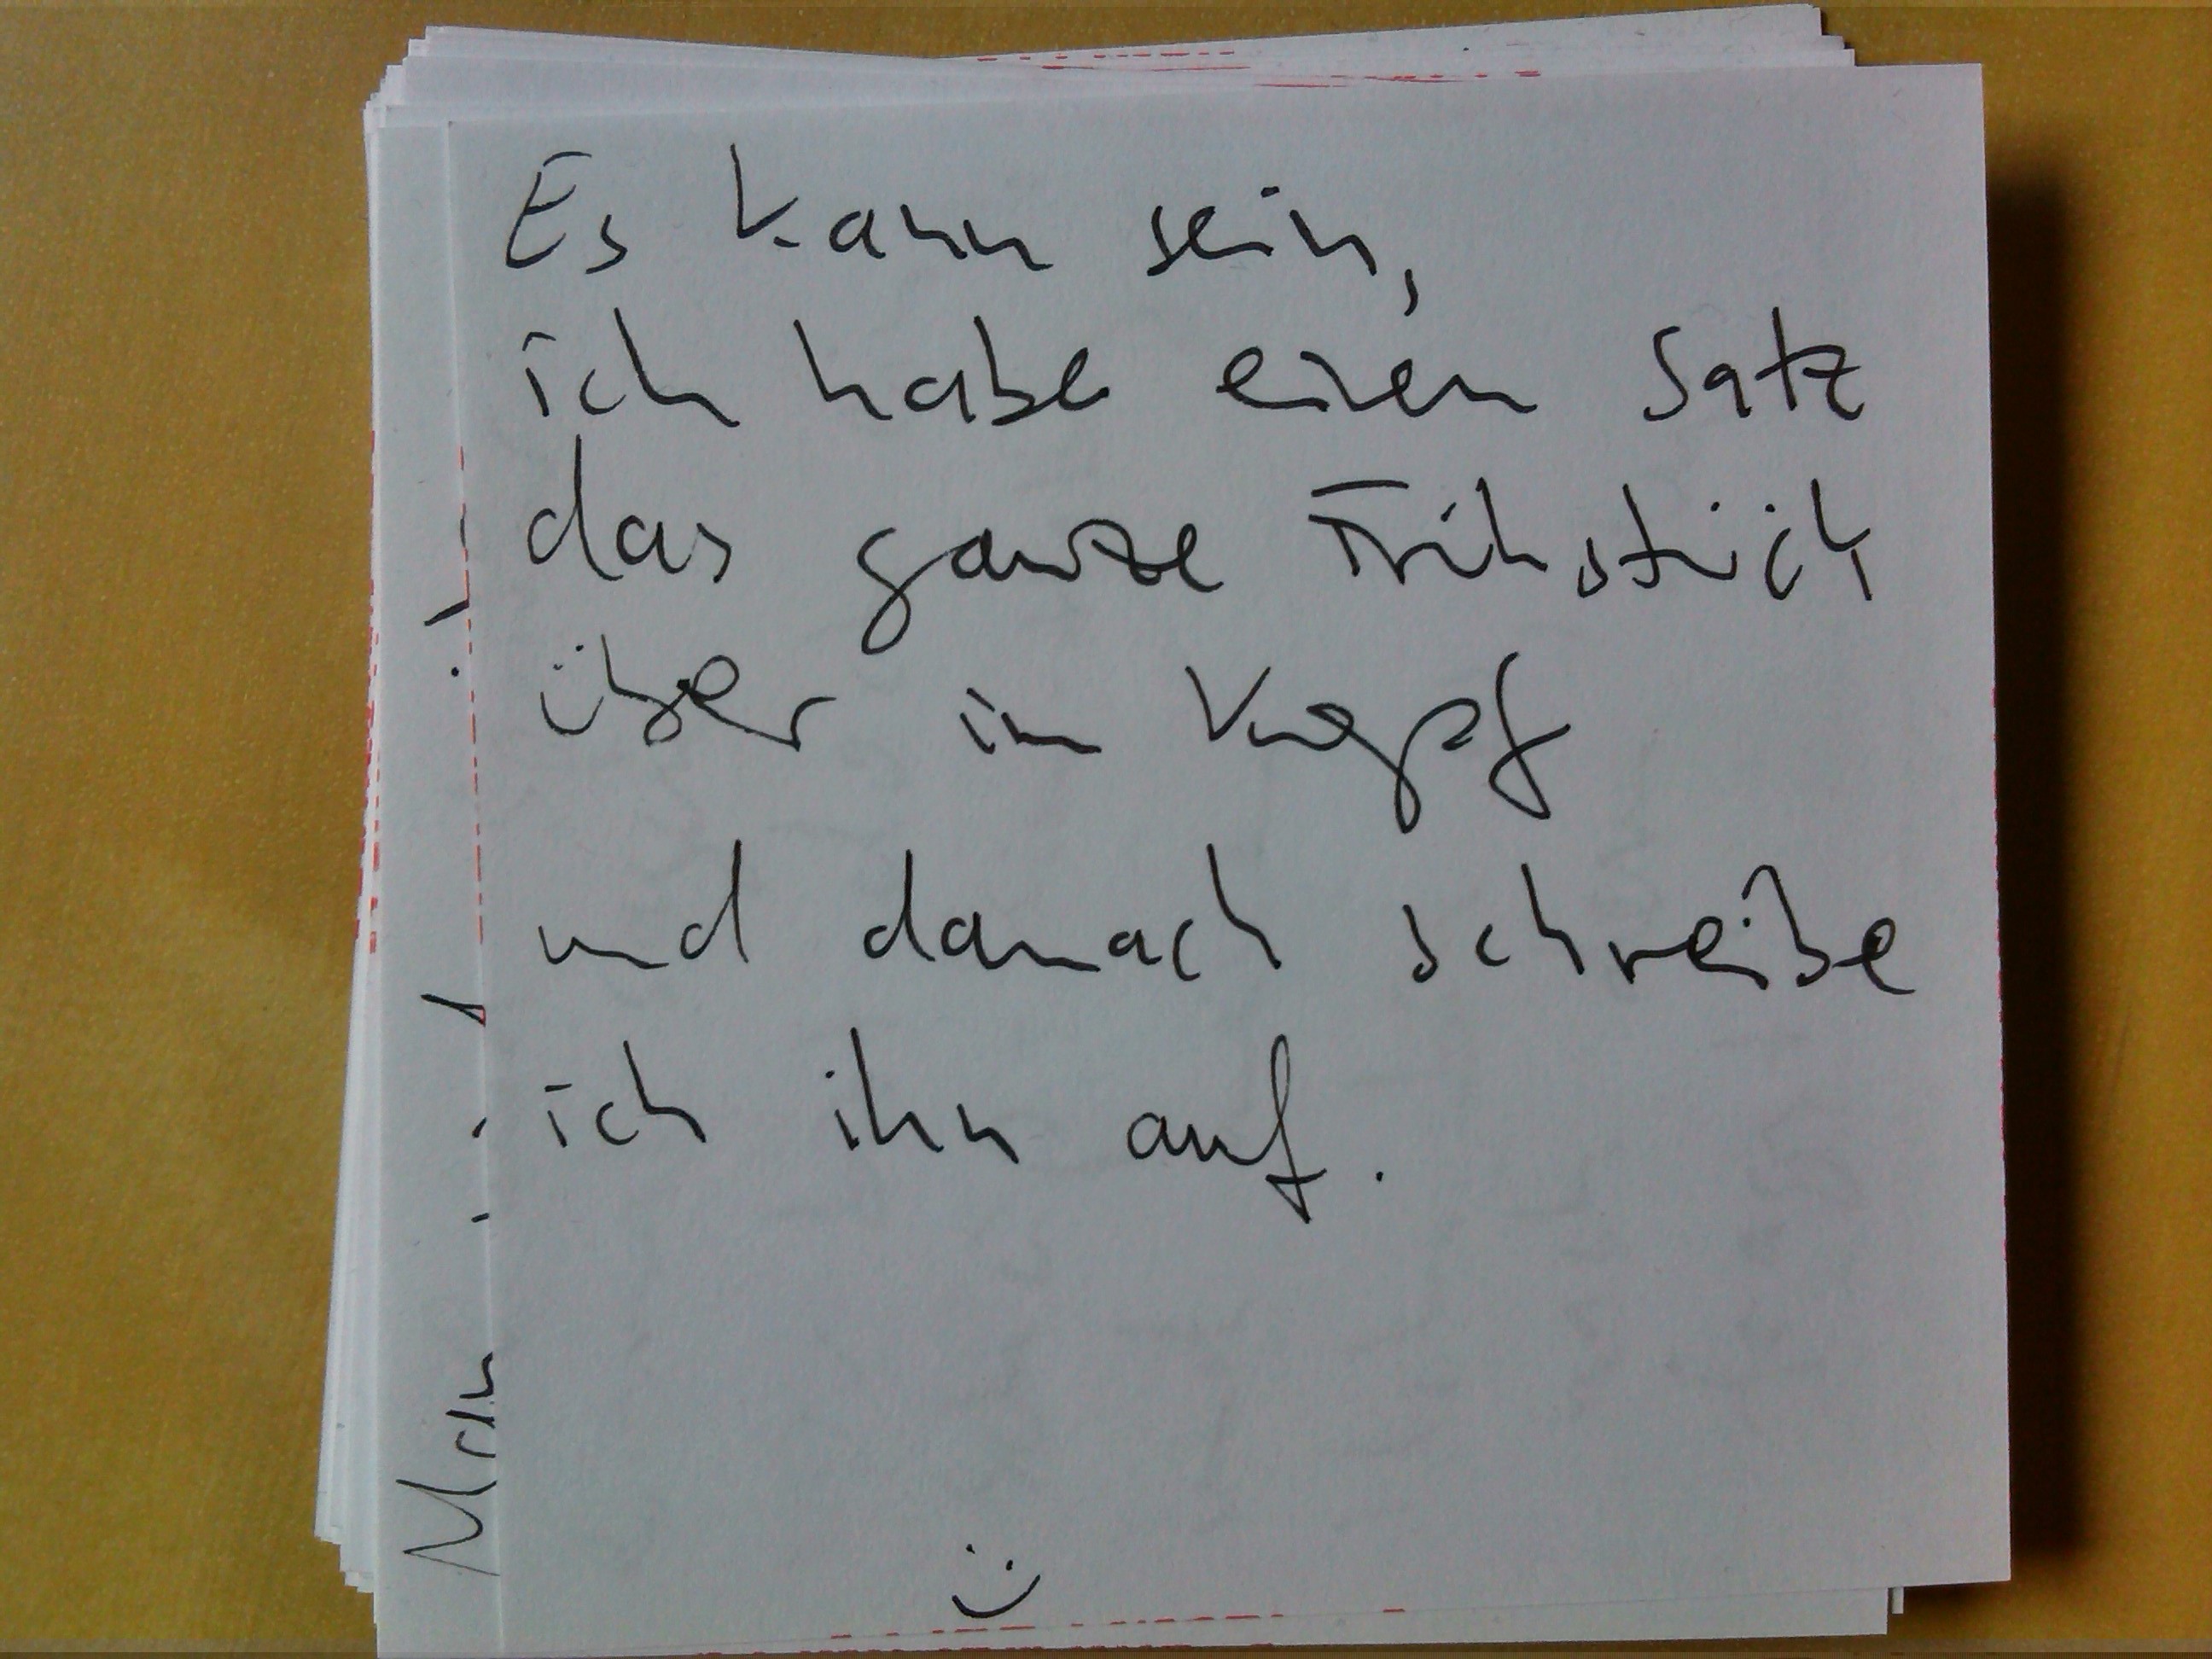 Es kann sein,
ich habe einen Satz
das ganze Frühstück
über im Kopf
und danach schreibe
ich ihn auf.